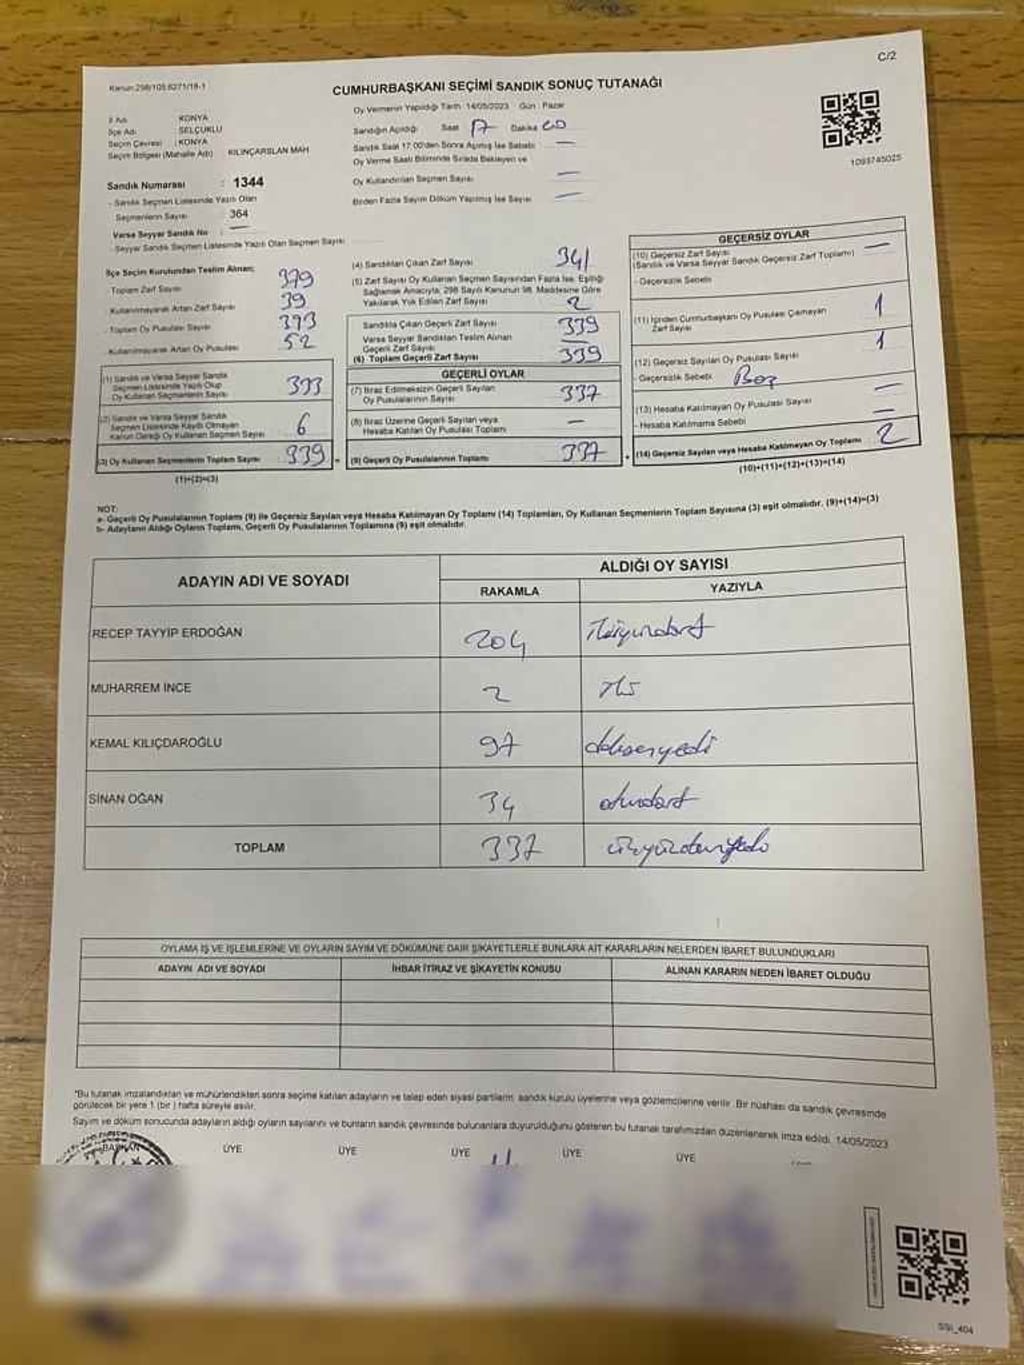 Kanun:298/105:6271/18-1
C/2
CUMHURBAŞKANI SEÇİMİ SANDIK SONUÇ TUTANAĞI
İl Adı : KONYA
İlçe Adı : SELÇUKLU
Seçim Çevresi : KONYA
Seçim Bölgesi (Mahalle Adı) : KILINÇARSLAN MAH
Sandık Numarası : 1344
- Sandık Seçmen Listesinde Yazılı Olan
Seçmenlerin Sayısı : 364
Varsa Seyyar Sandık No : —
- Seyyar Sandık Seçmen Listesinde Yazılı Olan Seçmen Sayısı
Oy Vermenin Yapıldığı Tarih : 14/05/2023 Gün : Pazar
Sandığın Açıldığı Saat 17 Dakika 00
Sandık Saat 17.00'den Sonra Açılmış İse Sebebi : —
Oy Verme Saati Bitiminde Sırada Bekleyen ve
Oy Kullandırılan Seçmen Sayısı —
Birden Fazla Sayım Döküm Yapılmış İse Sayısı —
1093745025
İlçe Seçim Kurulundan Teslim Alınan;
- Toplam Zarf Sayısı 379
- Kullanılmayarak Artan Zarf Sayısı 39
- Toplam Oy Pusulası Sayısı 393
- Kullanılmayarak Artan Oy Pusulası 52
(1) Sandık ve Varsa Seyyar Sandık
Seçmen Listesinde Yazılı Olup
Oy Kullanan Seçmenlerin Sayısı 333
(2) Sandık ve Varsa Seyyar Sandık
Seçmen Listesinde Kayıtlı Olmayan
Kanun Gereği Oy Kullanan Seçmen Sayısı 6
(3) Oy Kullanan Seçmenlerin Toplam Sayısı 339 =
(1)+(2)=(3)
(4) Sandıktan Çıkan Zarf Sayısı 341
(5) Zarf Sayısı Oy Kullanan Seçmen Sayısından Fazla İse, Eşitliği
Sağlamak Amacıyla, 298 Sayılı Kanunun 98. Maddesine Göre
Yakılarak Yok Edilen Zarf Sayısı 2
Sandıkta Çıkan Geçerli Zarf Sayısı 339
Varsa Seyyar Sandıktan Teslim Alınan
Geçerli Zarf Sayısı —
(6) Toplam Geçerli Zarf Sayısı 339
GEÇERLİ OYLAR
(7) İtiraz Edilmeksizin Geçerli Sayılan
Oy Pusulalarının Sayısı 337
(8) İtiraz Üzerine Geçerli Sayılan veya
Hesaba Katılan Oy Pusulası Toplamı —
(9) Geçerli Oy Pusulalarının Toplamı 337 +
GEÇERSİZ OYLAR
(10) Geçersiz Zarf Sayısı —
(Sandık ve Varsa Seyyar Sandık Geçersiz Zarf Toplamı)
- Geçersizlik Sebebi
(11) İçinden Cumhurbaşkanı Oy Pusulası Çıkmayan
Zarf Sayısı 1
(12) Geçersiz Sayılan Oy Pusulası Sayısı 1
- Geçersizlik Sebebi Boş
(13) Hesaba Katılmayan Oy Pusulası Sayısı —
- Hesaba Katılmama Sebebi —
(14) Geçersiz Sayılan veya Hesaba Katılmayan Oy Toplamı 2
(10)+(11)+(12)+(13)=(14)
NOT:
a- Geçerli Oy Pusulalarının Toplamı (9) ile Geçersiz Sayılan veya Hesaba Katılmayan Oy Toplamı (14) Toplamları, Oy Kullanan Seçmenlerin Toplam Sayısına (3) eşit olmalıdır. (9)+(14)=(3)
b- Adayların Aldığı Oyların Toplamı, Geçerli Oy Pusulalarının Toplamına (9) eşit olmalıdır.
ADAYIN ADI VE SOYADI
ALDIĞI OY SAYISI
RAKAMLA YAZIYLA
RECEP TAYYİP ERDOĞAN 204 ikiyüzdört
MUHARREM İNCE 2 iki
KEMAL KILIÇDAROĞLU 97 doksanyedi
SİNAN OĞAN 34 otuzdört
TOPLAM 337 üçyüzotuzyedi
OYLAMA İŞ VE İŞLEMLERİNE VE OYLARIN SAYIM VE DÖKÜMÜNE DAİR ŞİKAYETLERLE BUNLARA AİT KARARLARIN NELERDEN İBARET BULUNDUKLARI
ADAYIN ADI VE SOYADI İHBAR İTİRAZ VE ŞİKAYETİN KONUSU ALINAN KARARIN NEDEN İBARET OLDUĞU
*Bu tutanak imzalandıktan ve mühürlendikten sonra seçime katılan adayların ve talep eden siyasi partilerin, sandık kurulu üyelerine veya gözlemcilerine verilir. Bir nüshası da sandık çevresinde
görülecek bir yere 1 (bir ) hafta süreyle asılır.
Sayım ve döküm sonucunda adayların aldığı oyların sayılarını ve bunların sandık çevresinde bulunanlara duyurulduğunu gösteren bu tutanak tarafımızdan düzenlenerek imza edildi. 14/05/2023
BAŞKAN ÜYE ÜYE ÜYE ÜYE ÜYE
SSI_404